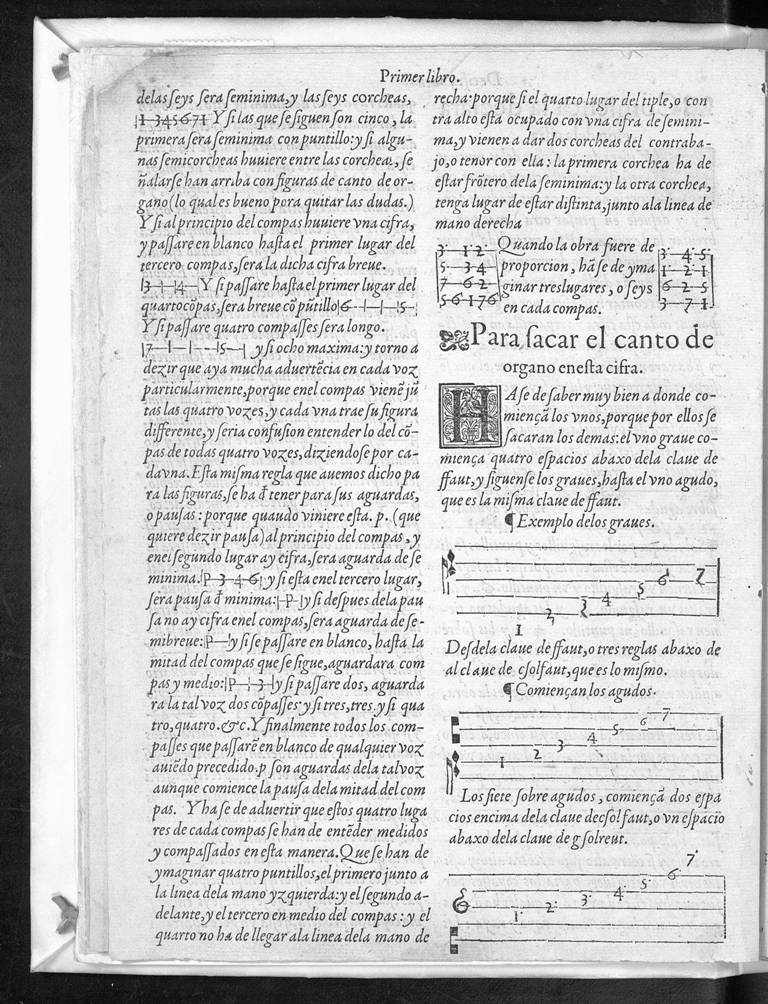 Primer libro.
delas seys sera seminima,y las seys corcheas,
|1-345671 Y si las que se siguen son cinco, la
primera sera seminima con puntillo:y si algu-
nas semicorcheas huuiere entre las corcheas, se
ñalarse han arriba con figuras de canto de or-
gano (lo qual es bueno pora quitar las dudas.)
Y si al principio del compas huuiere vna cifra,
y passare en blanco hasta el primer lugar del
tercero compas,sera la dicha cifra breue.
|3-|-|4-|Y si passare hasta el primer lugar del
quarto cōpas,sera breue cō pūtillo|6-|-|-|5-|
Y si passare quatro compasses sera longo.
|7-|-|-|-|5-| y si ocho maxima:y torno a
dezir que aya mucha aduertēcia en cada voz
particularmente,porque enel compas vienē jū
tas las quatro vozes,y cada vna trae su figura
differente,y seria confusion entender lo del cō-
pas de todas quatro vozes,diziendose por ca-
davna. Esta misma regla que auemos dicho pa
ra las figuras,se ha đ tener para sus aguardas,
o pausas : porque quaudo viniere esta. p. (que
quiere dezir pausa) al principio del compas,y
enel segundo lugar ay cifra,sera aguarda de se
minima.|p-3-4-6|y si esta enel tercero lugar,
sera pausa đ minima:|-p-|y si despues dela pau
sa no ay cifra enel compas,sera aguarda de se-
mibreue:|p-|y si se passare en blanco, hasta la
mitad del compas que se sigue,aguardara com
pas y medio:|p-|-3-|y si passare dos, aguarda
ra la tal voz dos cōpasses y si tres,tres.y si qua
tro,quatro.&c.Y finalmente todos los com-
passes que passarē en blanco de qualquier voz
auiēdo precedido.p son aguardas dela tal voz
aunque comience la pausa dela mitad del com
pas. Y ha se de aduertir que estos quatro luga
res de cada compas se han de entēder medidos
y compassados en esta manera.Que se han de
ymaginar quatro puntillos,el primero junto a
la linea dela mano yzquierda:y el segundo a-
delante,y el tercero en medio del compas : y el
quarto no ha de llegar ala linea dela mano de
recha:porque si el quarto lugar del tiple,o con
tra alto esta ocupado con vna cifra de semini-
ma,y vienen a dar dos corcheas del contraba-
jo,o tenor con ella : la primera corchea ha de
estar frōtero dela seminima:y la otra corchea,
tenga lugar de estar distinta,junto ala linea de
mano derecha
3· 1·2· Quando la obra fuere de 3· 4·5·
5· 3·4 proporcion, hāse de yma 1· 2·1
7 6·2 ginar tres lugares, o seys 6·2·5
5·6·176 en cada compas. 3· 7·1
Para sacar el canto de
organo enesta cifra.
HAse de saber muy bien a donde co-
miençā los vnos,porque por ellos se
sacaran los demas:el vno graue co-
miença quatro espacios abaxo dela claue de
ffaut,y siguense los graues,hasta el vno agudo,
que es la misma claue de ffaut.
¶ Exemplo delos graues.
1 2 3 4 5 6 7
Desdela claue de ffaut,o tres reglas abaxo de
al claue de csolfaut,que es lo mismo.
¶ Comiençan los agudos.
1 2 3 4 5 6 7
Los siete sobre agudos, comiençā dos espa
cios encima dela claue decsolfaut,o vn espacio
abaxo dela claue de gsolreut.
1· 2· 3· 4· 5· 6· 7·